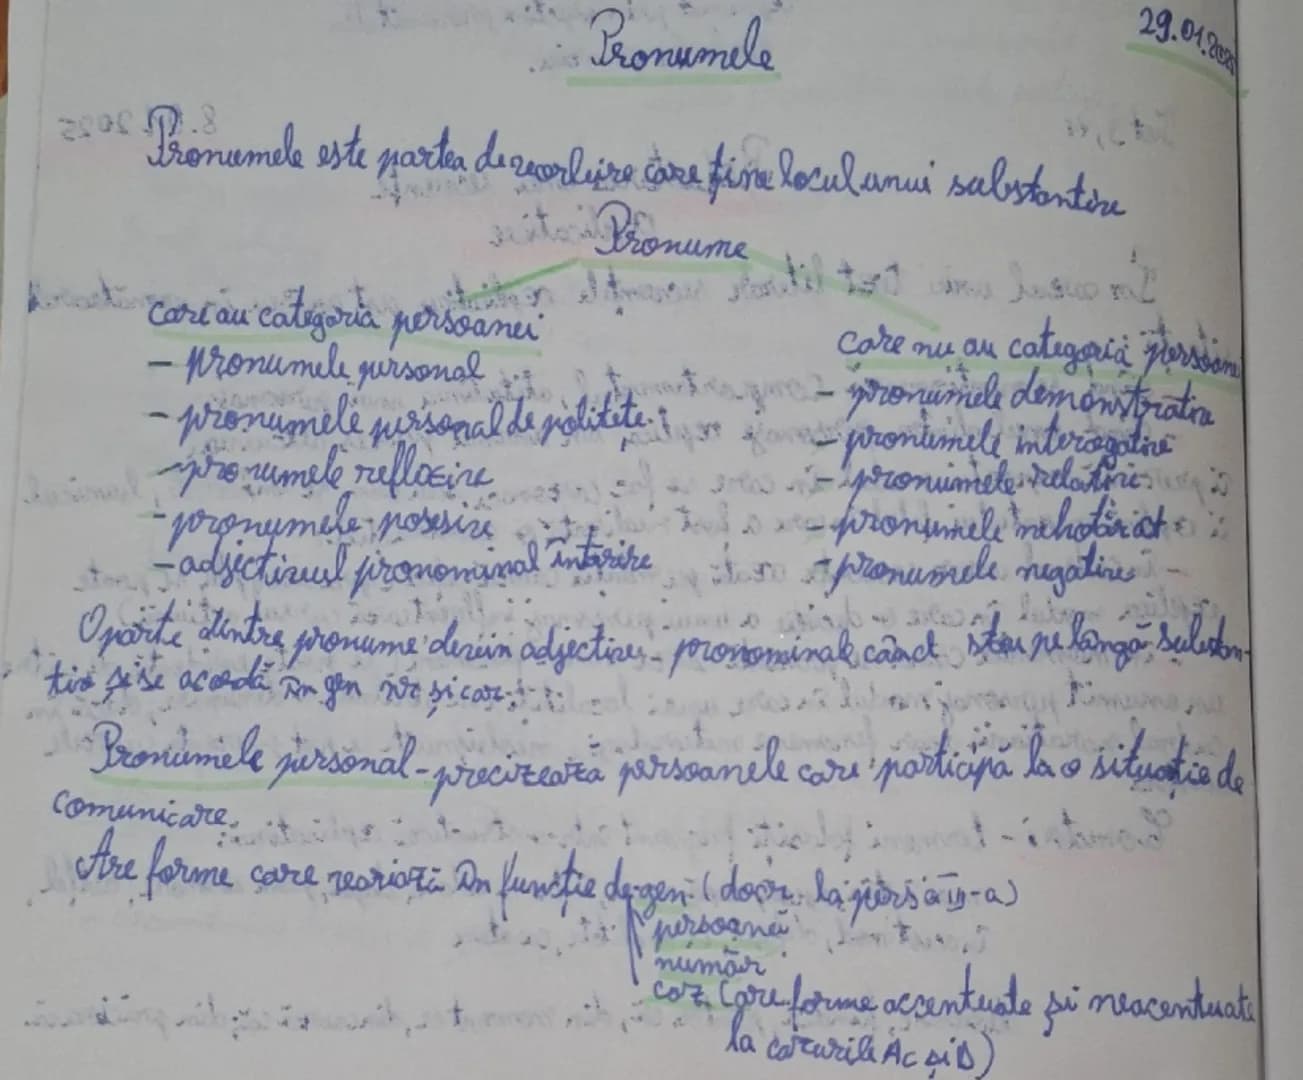 29.01.2025
Pronumele
Pronumele este partea de vorbire care ține locul unui substantiv
Pronume
care au categoria persoanei
- pronumele personal
- pronumele personal de politețe
- pronumele reflexive
- pronumele posesive
- adjectivul pronominal întărire
care nu au categoria persoane
- pronumele demonstrative
- pronumele interogative
- pronumele relative
- pronumele nehotărât
- pronumele negative
O parte dintre pronume devin adjective pronominale când stau pe lângă substan-
tiv și se acordă în gen nr și caz
Pronumele personal - precizează persoanele care participă la o situație de
comunicare.
Are forme care variază în funcție de gen (doar la pers a III-a)
persoană
număr
caz (are forme accentuate și neaccentuate
la cazurile Ac și D)